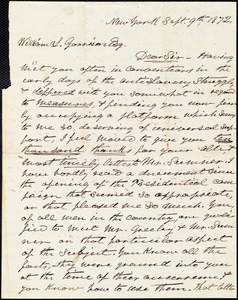 New York Sept. 9th 1872.
William L. Garrison Esq.
Dear Sir - Having
met you often in Conventions in the
early days of the Anti Slavery Struggle,
& differed with you somewhat in regard
to measures, & finding you now firm-
ly occupying a platform which seems
to me so deserving of universal Sup-
port, I feel moved to give you
thousand thanks for your able &
most timely letter to Mr. Sumner. I
have hardly read a document since
the opening of the Presidential cam-
paign that seemed so appropriate,
or that pleased me so much. You
of all men in the country, are quali-
fied to meet Mr. Greeley & Mr. Sum-
ner on that particular aspect
of the Subject. You know all the
facts, they were ground into you
at the time of their occurrence, &
you know how to use them. Not